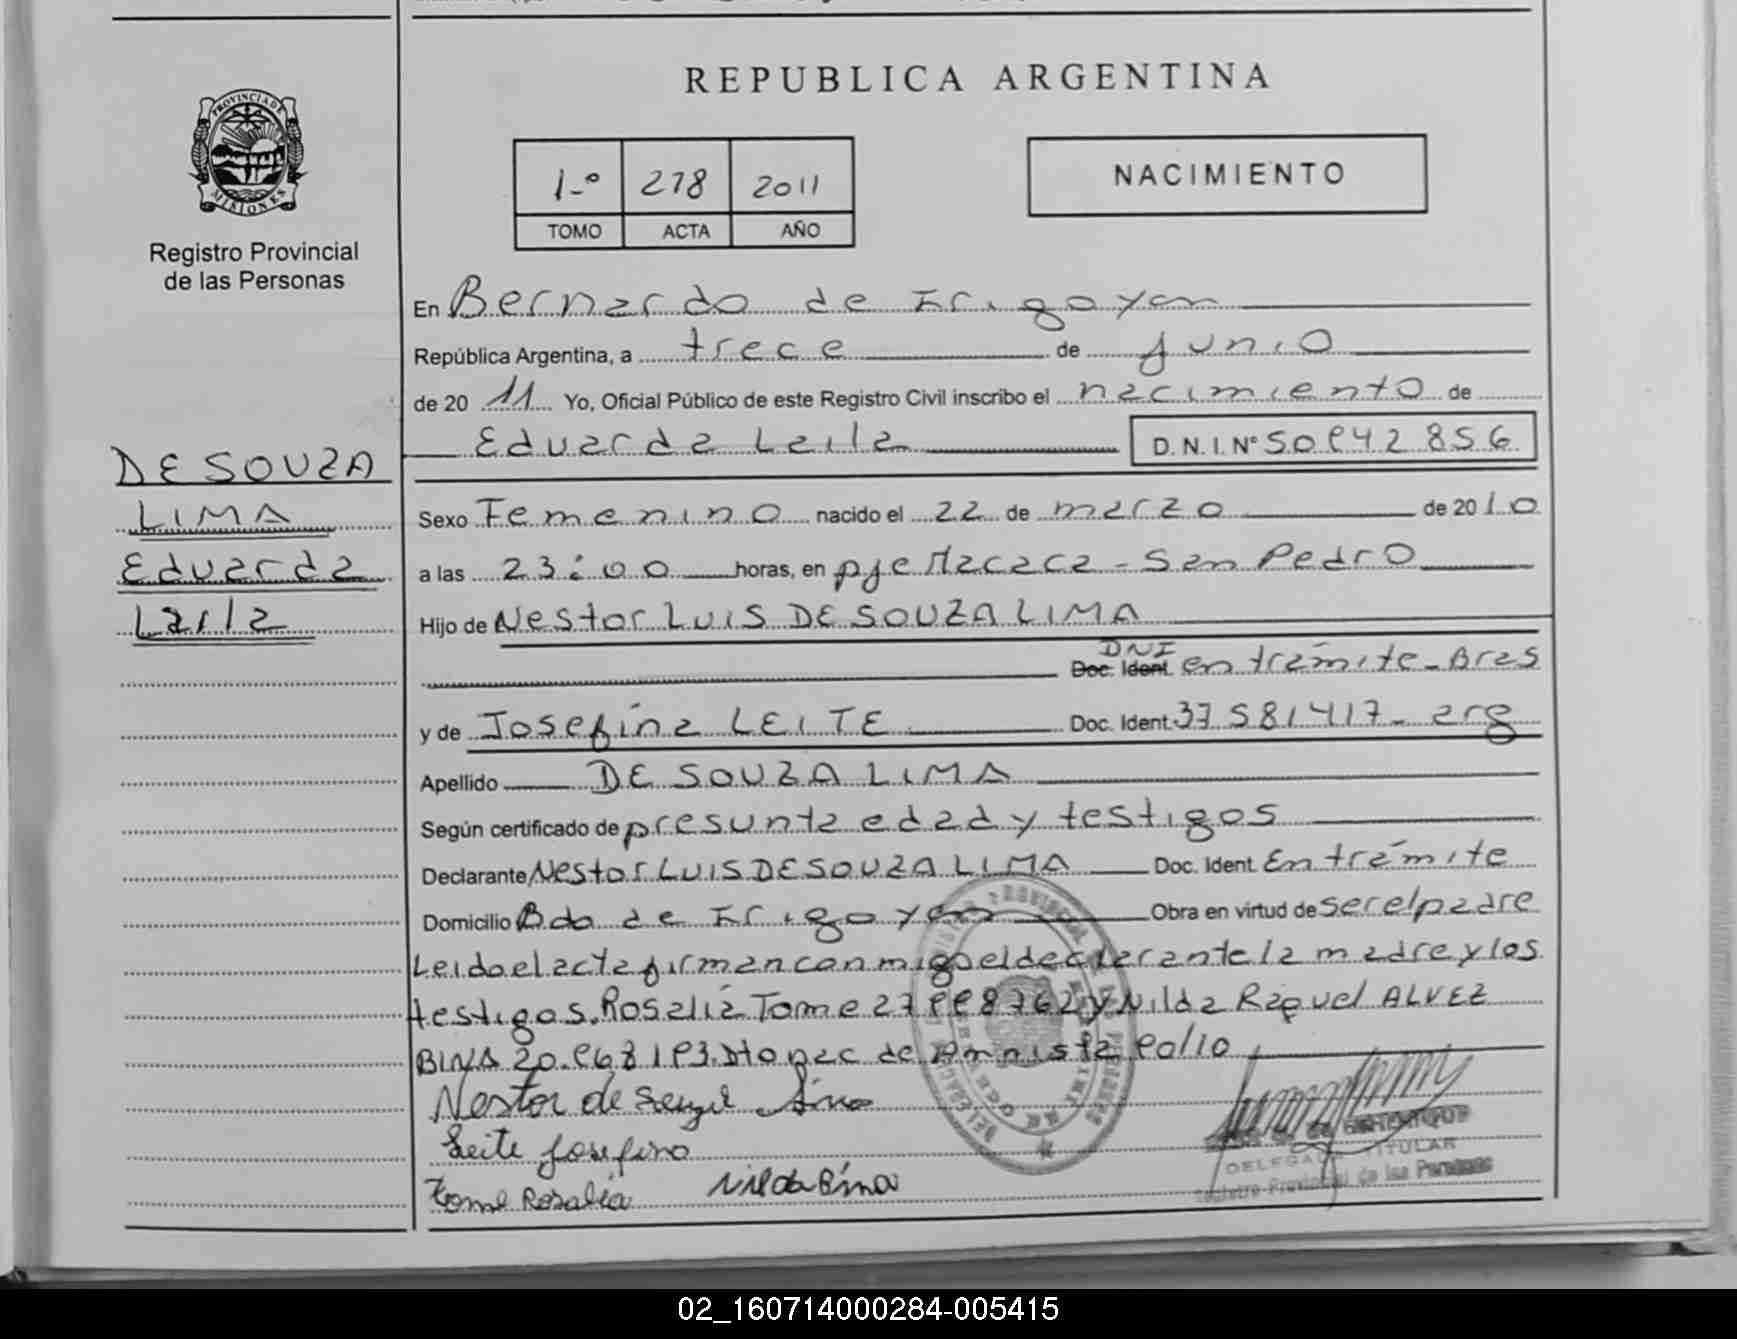 REPUBLICA ARGENTINA
PROVINCIA DE
MISIONES
Registro Provincial
de las Personas
1-º 278 2011
TOMO ACTA AÑO
NACIMIENTO
En Bernardo de Irigoyen
República Argentina, a trece de junio
de 2011 Yo, Oficial Público de este Registro Civil inscribo el nacimiento de
Eduarda Leila D.N.I. Nº 50942856
DE SOUZA
LIMA
Eduarda
Leila
Sexo Femenino nacido el 22 de marzo de 2010
a las 23:00 horas, en pje Macaca - San Pedro
Hijo de Nestor LUIS DE SOUZA LIMA
DNI
Doc. Ident. en trámite - Bras
y de Josefina LEITE Doc. Ident. 37581417 - arg
Apellido DE SOUZA LIMA
Según certificado de presunta edad y testigos
Declarante Nestor LUIS DE SOUZA LIMA Doc. Ident. En trámite
Domicilio Bdo de Irigoyen Obra en virtud de ser el padre
Leido el acta firman conmigo el declarante la madre y los
testigos. Rosalia Tome 27998762 y Nilda Raquel ALVEZ
BINA 20.968193
Nestor de Lima
Leite Josefina
Tome Rosalia Nilda Bina
DELEGADO TITULAR
Registro Provincial de las Personas
02_160714000284-005415